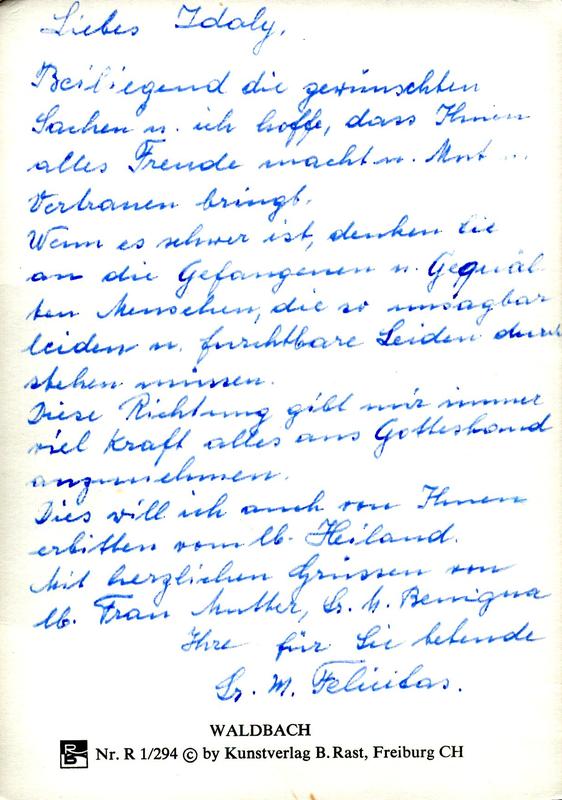 Liebes Idaly,
Beiliegend die gewünschten
Sachen u. ich hoffe, dass Ihnen
alles Freude macht u. Mut ...
Vertrauen bringt.
Wenn es schwer ist, denken Sie
an die Gefangenen u. Gequäl-
ten Menschen, die so unsagbar
leiden u. furchtbare Leiden durch
stehen müssen.
Diese Richtung gibt mir immer
viel Kraft alles aus Gotteshand
anzunehmen.
Dies will ich auch von Ihnen
erbitten vom lb. Heiland.
Mit herzlichen Grüssen von
lb. Frau Mutter, Sr. M. Benigna
Ihre für Sie betende
Sr. M. Felicitas.
WALDBACH
RB Nr. R 1/294 © by Kunstverlag B. Rast, Freiburg CH